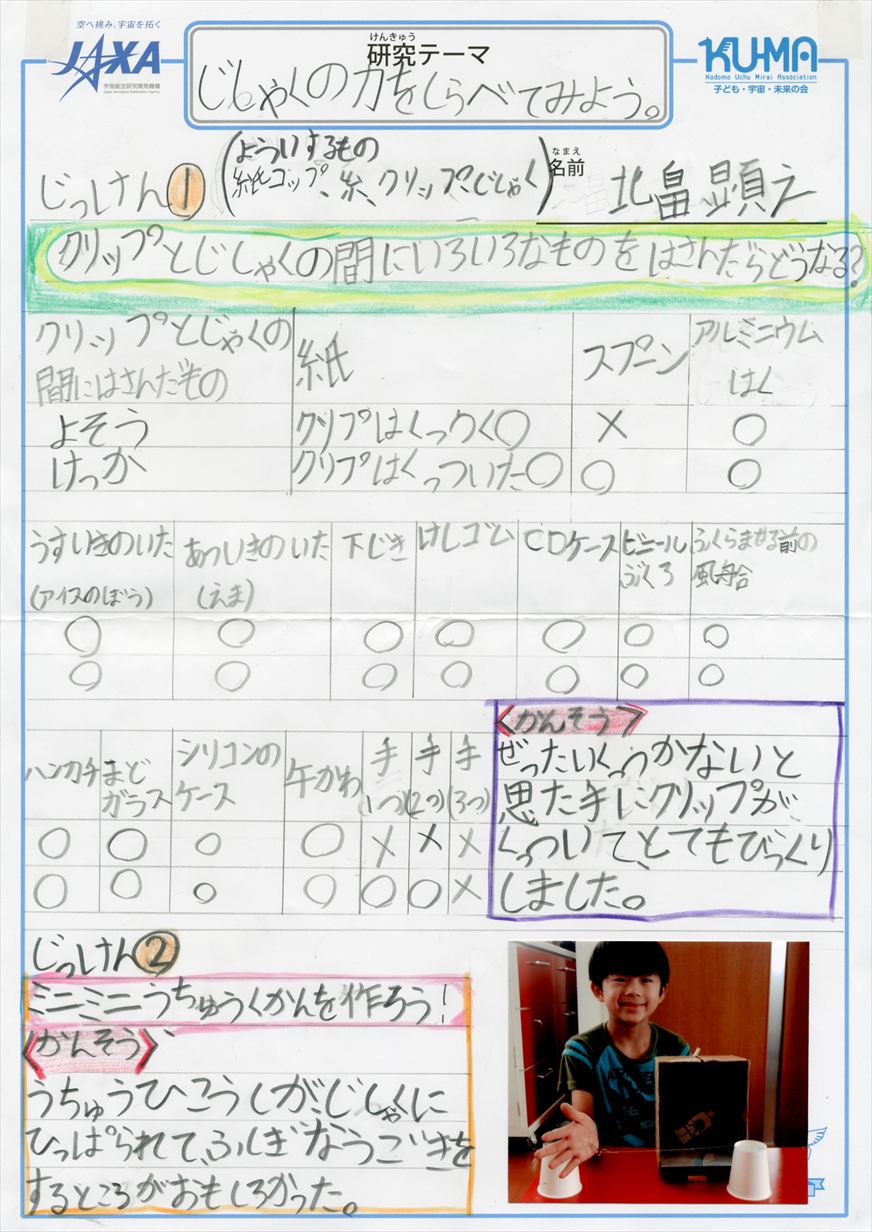 空へ挑み、宇宙を拓く
JAXA
宇宙航空研究開発機構
Japan Aerospace Exploration Agency
けんきゅう
研究テーマ
じしゃくの力をしらべてみよう。
KU-MA
Kodomo Uchu Mirai Association
子ども・宇宙・未来の会
じっけん①
(よういするもの
紙コップ、糸、クリップ、じしゃく)
なまえ
名前
北畠 顕え
クリップとじしゃくの間にいろいろなものをはさんだらどうなる?
クリップとじゃくの
間にはさんだもの
紙
スプーン
アルミニウム
はく
よそう
クリプはくっつく○
×
○
けっか
クリプはくっついた○
○
○
うすいきのいた
(アイスのぼう)
あついきのいた
(えま)
下じき
けしゴム
CDケース
ビニール
ぶくろ
ふくらませる前の
風船
○ ○ ○ ○ ○ ○ ○
○ ○ ○ ○ ○ ○ ○
ハンカチ
まど
ガラス
シリコンの
ケース
牛かわ
手
(1つ)
手
(2つ)
手
(3つ)
○ ○ ○ ○ × × ×
○ ○ ○ ○ ○ ○ ×
《かんそう》
ぜったいくっつかないと
思た手にクリップが、
くっついて、とてもびっくり
しました。
じっけん②
ミニミニうちゅうくかんを作ろう!
《かんそう》
うちゅうひこうしが、じしゃくに
ひっぱられて、ふしぎなうごきを
するところがおもしろかった。